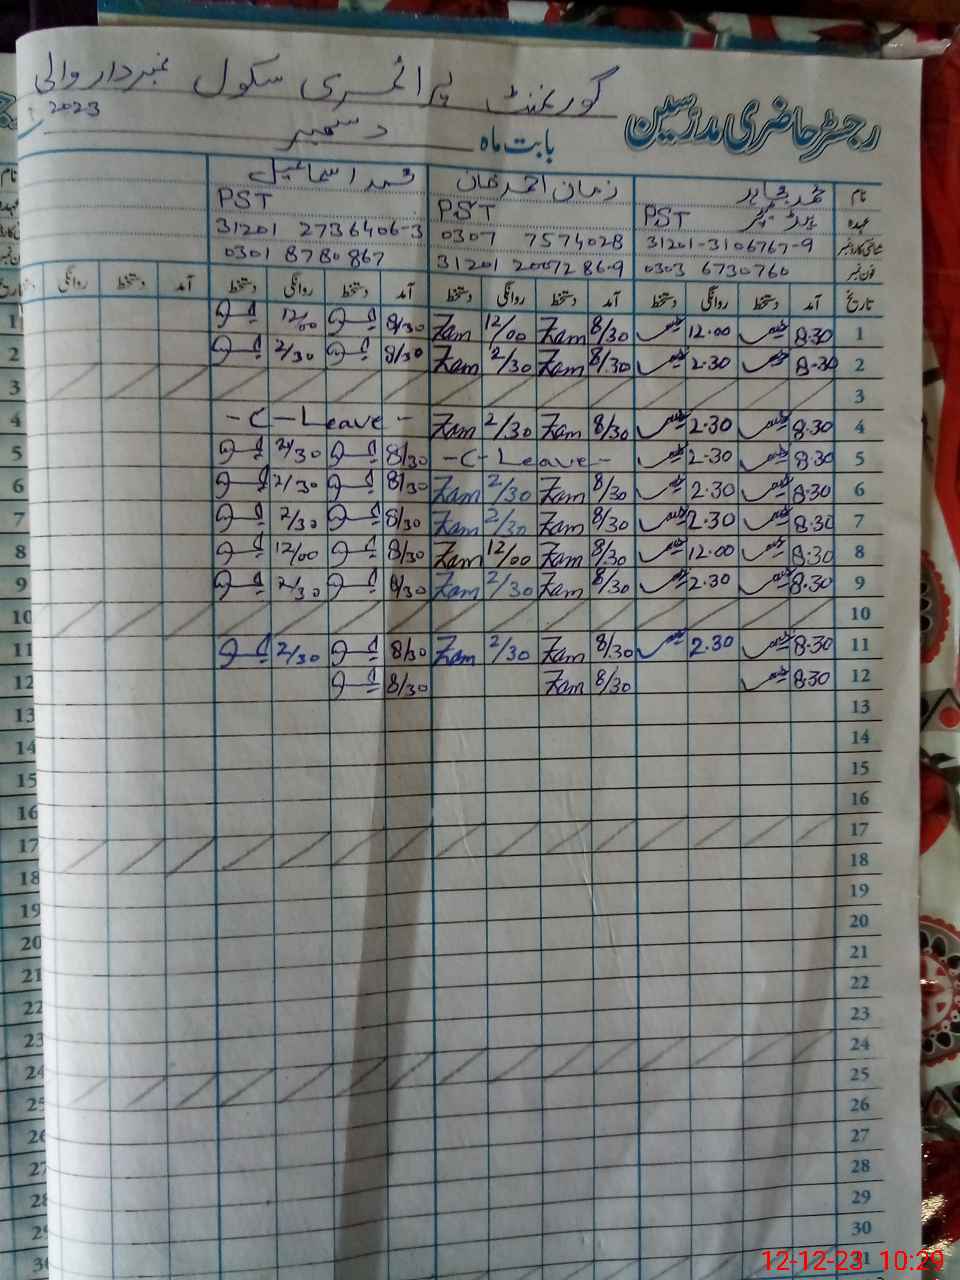 گورنمنٹ پرائمری سکول نمبردار والی
رجسٹر حاضری مدرسین
بابت ماہ دسمبر 2023
نام محمد زمان احمد خان محمد اسماعیل
عہدہ ہیڈ ٹیچر PST PST PST
شناختی کارڈ نمبر 31201-3106767-9 0307 7574028 31201 2736406-3
فون نمبر 0303 6730760 31201 2007286-9 0301 8780867
تاریخ آمد دستخط روانگی دستخط آمد دستخط روانگی دستخط آمد دستخط روانگی دستخط آمد دستخط روانگی
1 8.30 12.00 8/30 Zam 12/00 Zam 8/30 12/00 1
2 8.30 2.30 8/30 Zam 2/30 Zam 8/30 2/30 2
3 3
4 8.30 2.30 8/30 Zam 2/30 Zam -C-Leave- 4
5 8.30 2.30 -C-Leave- 8/30 2/30 5
6 8.30 2.30 8/30 Zam 2/30 Zam 8/30 2/30 6
7 8.30 2.30 8/30 Zam 2/30 Zam 8/30 2/30 7
8 8.30 12.00 8/30 Zam 12/00 Zam 8/30 12/00 8
9 8.30 2.30 8/30 Zam 2/30 Zam 8/30 2/30 9
10 10
11 8.30 2.30 8/30 Zam 2/30 Zam 8/30 2/30 11
12 8.30 8/30 Zam 8/30 12
13 13
14 14
15 15
16 16
17 17
18 18
19 19
20 20
21 21
22 22
23 23
24 24
25 25
26 26
27 27
28 28
29 29
30 30
31
12-12-23 10:29